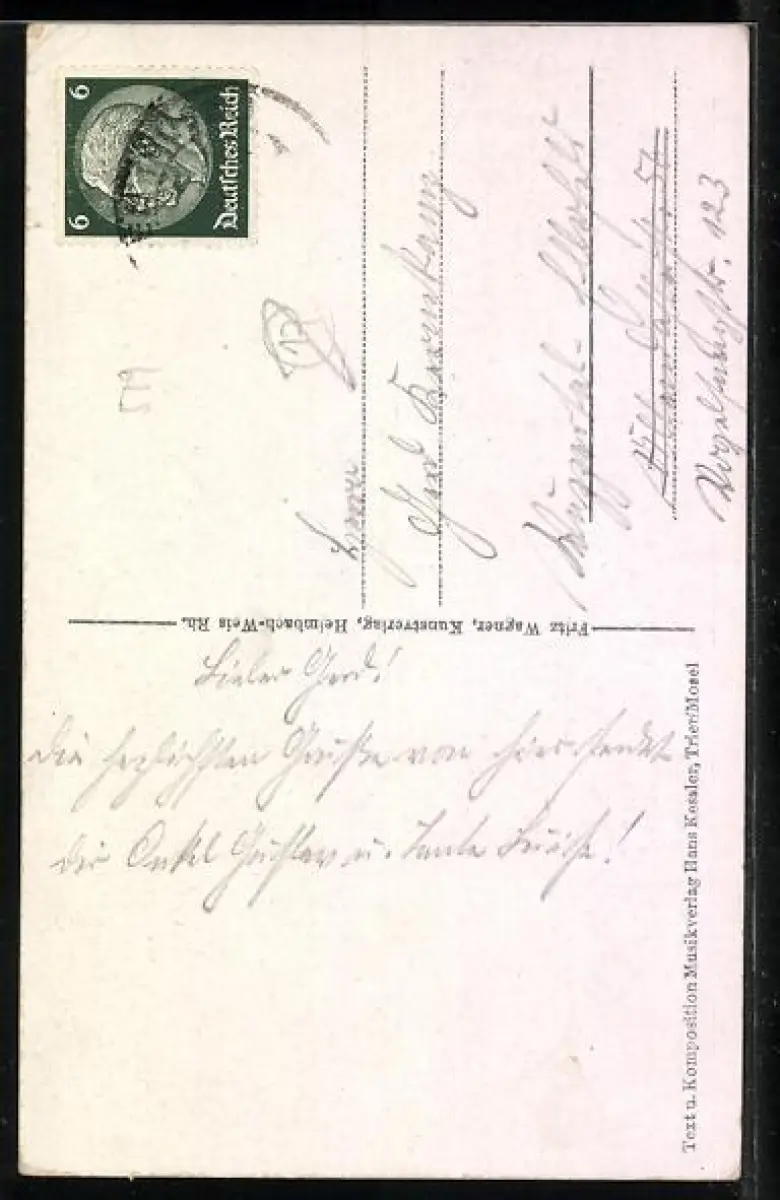 Deutsches Reich
6 6
519
17
Herrn
Gerd
Wuppertal - Elberfeld
57
Vogelsangstr. 123
Fritz Wagner, Kunstverlag, Heimbach-Weis Rh.
Lieber Gerd!
Die herzlichsten Grüße von hier sendet
dir Onkel Gustav u. Tante Luise!
Text u. Komposition Musikverlag Hans Kessler, Trier/Mosel